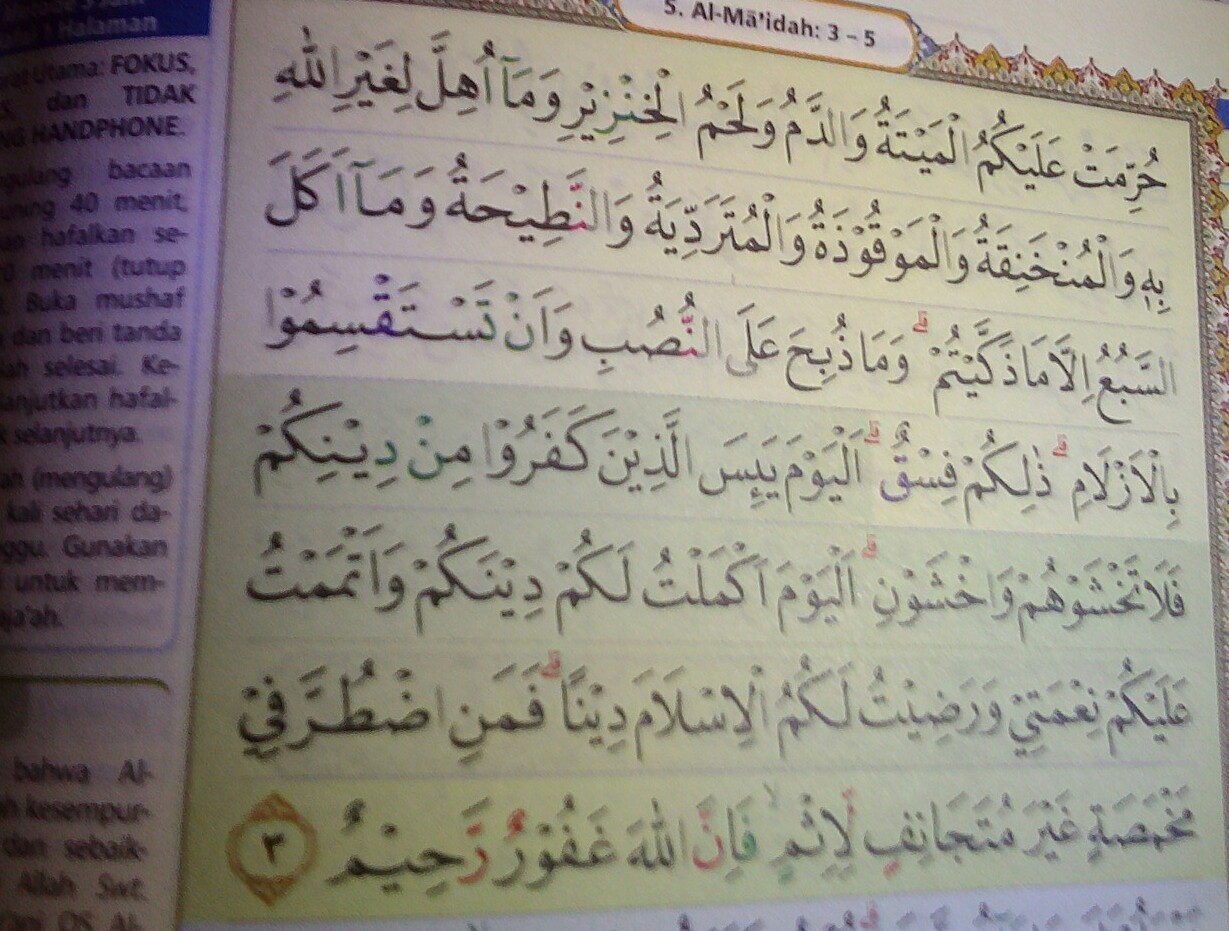 1 Halaman
Utama: FOKUS,
dan TIDAK
HANDPHONE.
bacaan
40 menit,
hafalkan se-
menit (tutup
Buka mushaf
dan beri tanda
selesai. Ke-
lanjutkan hafal-
selanjutnya.
(mengulang)
kali sehari da-
Gunakan
untuk mem-
bahwa Al-
kesempur-
dan sebaik-
Allah Swt.
QS Al-
5. Al-Mā’idah: 3 – 5
حُرِّمَتْ عَلَيْكُمُ الْمَيْتَةُ وَالدَّمُ وَلَحْمُ الْخِنْزِيْرِ وَمَآ اُهِلَّ لِغَيْرِ اللّٰهِ
بِهٖ وَالْمُنْخَنِقَةُ وَالْمَوْقُوْذَةُ وَالْمُتَرَدِّيَةُ وَالنَّطِيْحَةُ وَمَآ اَكَلَ
السَّبُعُ اِلَّا مَا ذَكَّيْتُمْۗ وَمَا ذُبِحَ عَلَى النُّصُبِ وَاَنْ تَسْتَقْسِمُوْا
بِالْاَزْلَامِۗ ذٰلِكُمْ فِسْقٌۗ اَلْيَوْمَ يَىِٕسَ الَّذِيْنَ كَفَرُوْا مِنْ دِيْنِكُمْ
فَلَا تَخْشَوْهُمْ وَاخْشَوْنِۗ اَلْيَوْمَ اَكْمَلْتُ لَكُمْ دِيْنَكُمْ وَاَتْمَمْتُ
عَلَيْكُمْ نِعْمَتِيْ وَرَضِيْتُ لَكُمُ الْاِسْلَامَ دِيْنًاۗ فَمَنِ اضْطُرَّ فِيْ
مَخْمَصَةٍ غَيْرَ مُتَجَانِفٍ لِّاِثْمٍۙ فَاِنَّ اللّٰهَ غَفُوْرٌ رَّحِيْمٌ ٣